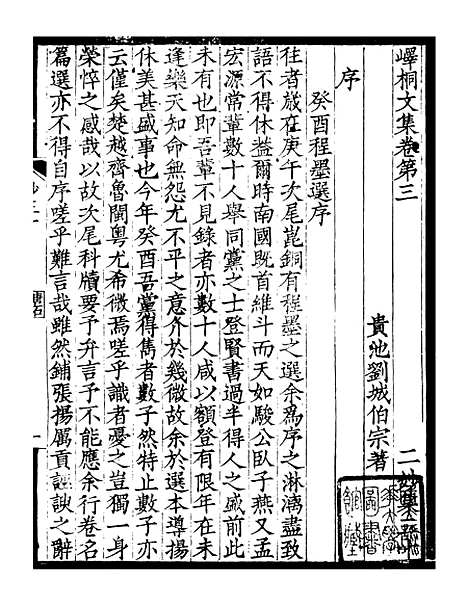 嶧桐文集卷第三
貴池劉城伯宗著
序
癸酉程墨選序
往者歲在庚午次尾崑銅有程墨之選余為序之淋漓盡致
語不得休葢爾時南國旣首維斗而天如駿公臥子燕又孟
宏源常輩數十人舉同黨之士登賢書過半得人之盛前此
未有也即吾輩不見錄者亦數十人咸以額登有限年在未
逢樂天知命無怨尤不平之意介於幾微故余於選本導揚
休美甚盛事也今年癸酉吾黨得雋者數子然特止數子亦
云僅矣楚越齊魯閩粵尤希微焉嗟乎識者憂之豈獨一身
榮悴之感哉以故次尾科牘要予弁言予不能應余行卷名
篇選亦不得自序嗟乎難言哉雖然鋪張揚厲貢諛之辭